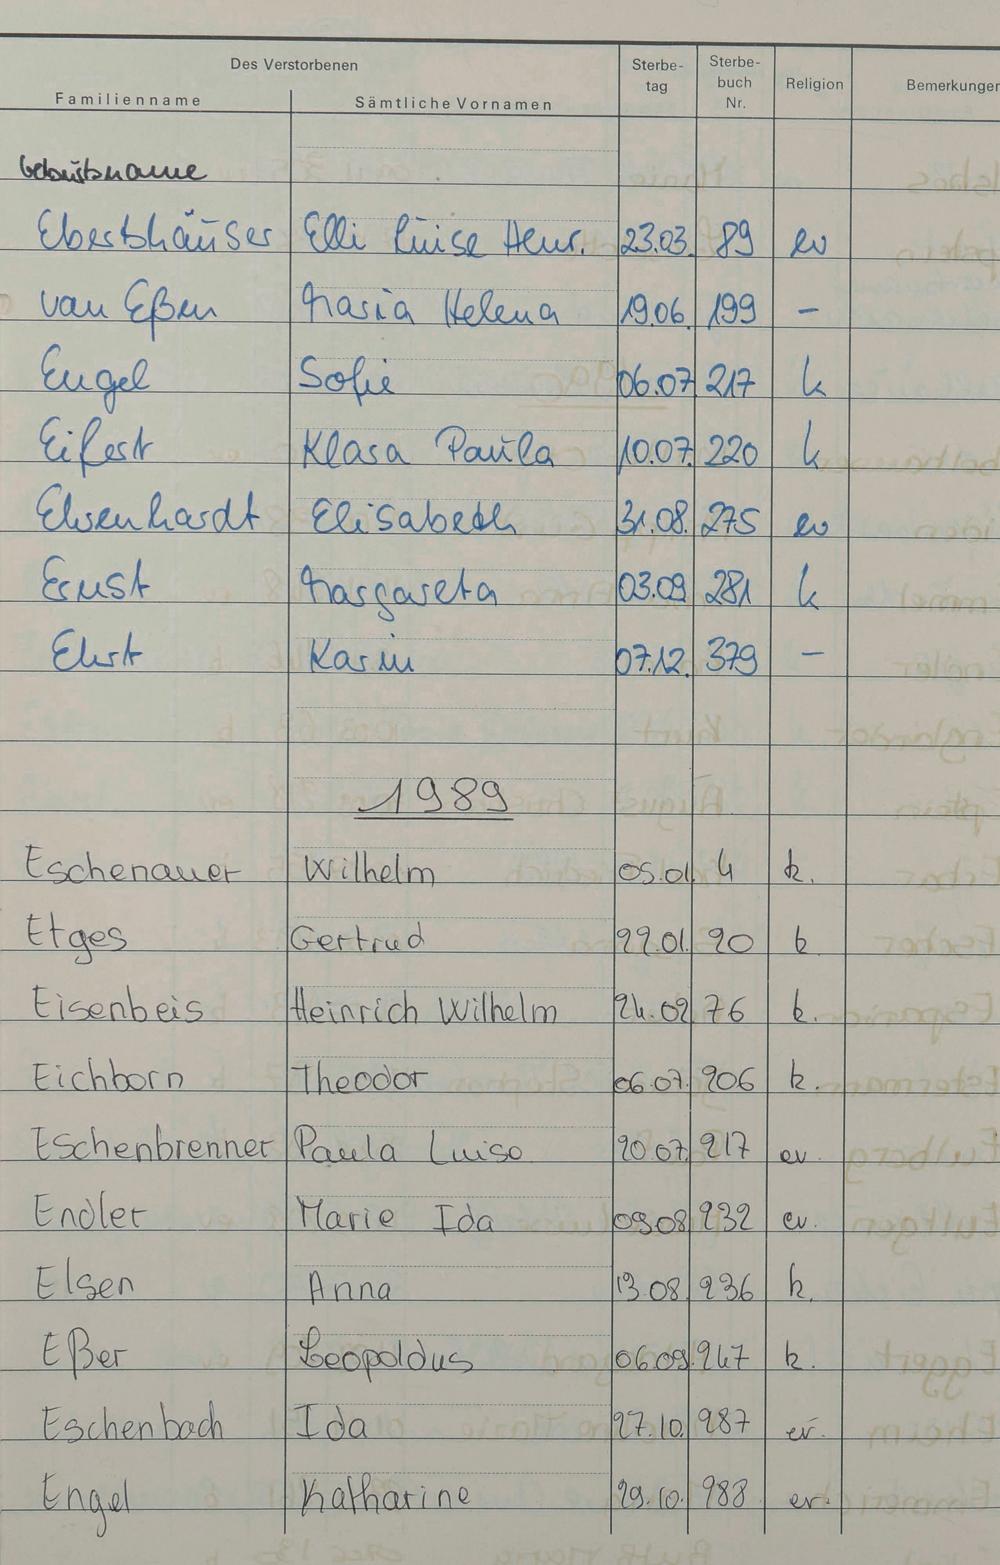 Des Verstorbenen
Familienname Sämtliche Vornamen Sterbe-tag Sterbe-buch Nr. Religion Bemerkungen
Geburtsname
Ebertshäuser Elli Luise Henr. 23.03. 89 ev
van Eßen Maria Helena 19.06. 199 –
Engel Sofie 06.07 217 k
Eifert Klara Paula 10.07. 220 k
Ehrenhardt Elisabeth 31.08. 275 ev
Ernst Margareta 03.09 281 k
Karin 07.12. 379 –
1989
Eschenauer Wilhelm 05.01. 4 k.
Etges Gertrud 22.01. 20 k
Eisenbeis Heinrich Wilhelm 24.02 76 k.
Eichborn Theodor 06.07. 206 k.
Eschenbrenner Paula Luise 20.07. 217 ev.
Endler Marie Ida 09.08 232 ev.
Elsen Anna 13.08 236 k.
Eßer Leopoldus 06.09. 247 k.
Eschenbach Ida 27.10. 287 ev.
Engel Katharine 29.10. 288 ev.